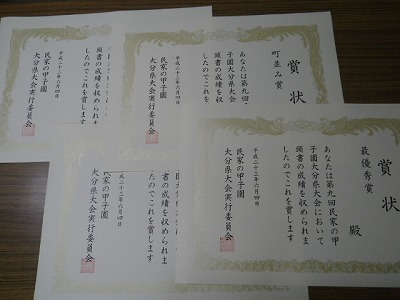 賞状
最優秀賞
殿
あなたは第九回民家の甲
子園大分県大会において
頭書の成績を収められま
したのでこれを賞します
平成二十三年六月四日
民家の甲子園
大分県大会実行委員会
賞状
町並み賞
あなたは第九回
子園大分県大会
頭書の成績を収
したのでこれを
平成二十三年六月四日
民家の甲子園
大分県大会実行委員会
頭書の成績を収められま
したのでこれを賞します
平成二十三年六月四日
民家の甲子園
大分県大会実行委員会
書の成績を収められま
たのでこれを賞します
成二十三年六月四日
民家の甲子園
大分県大会実行委員会